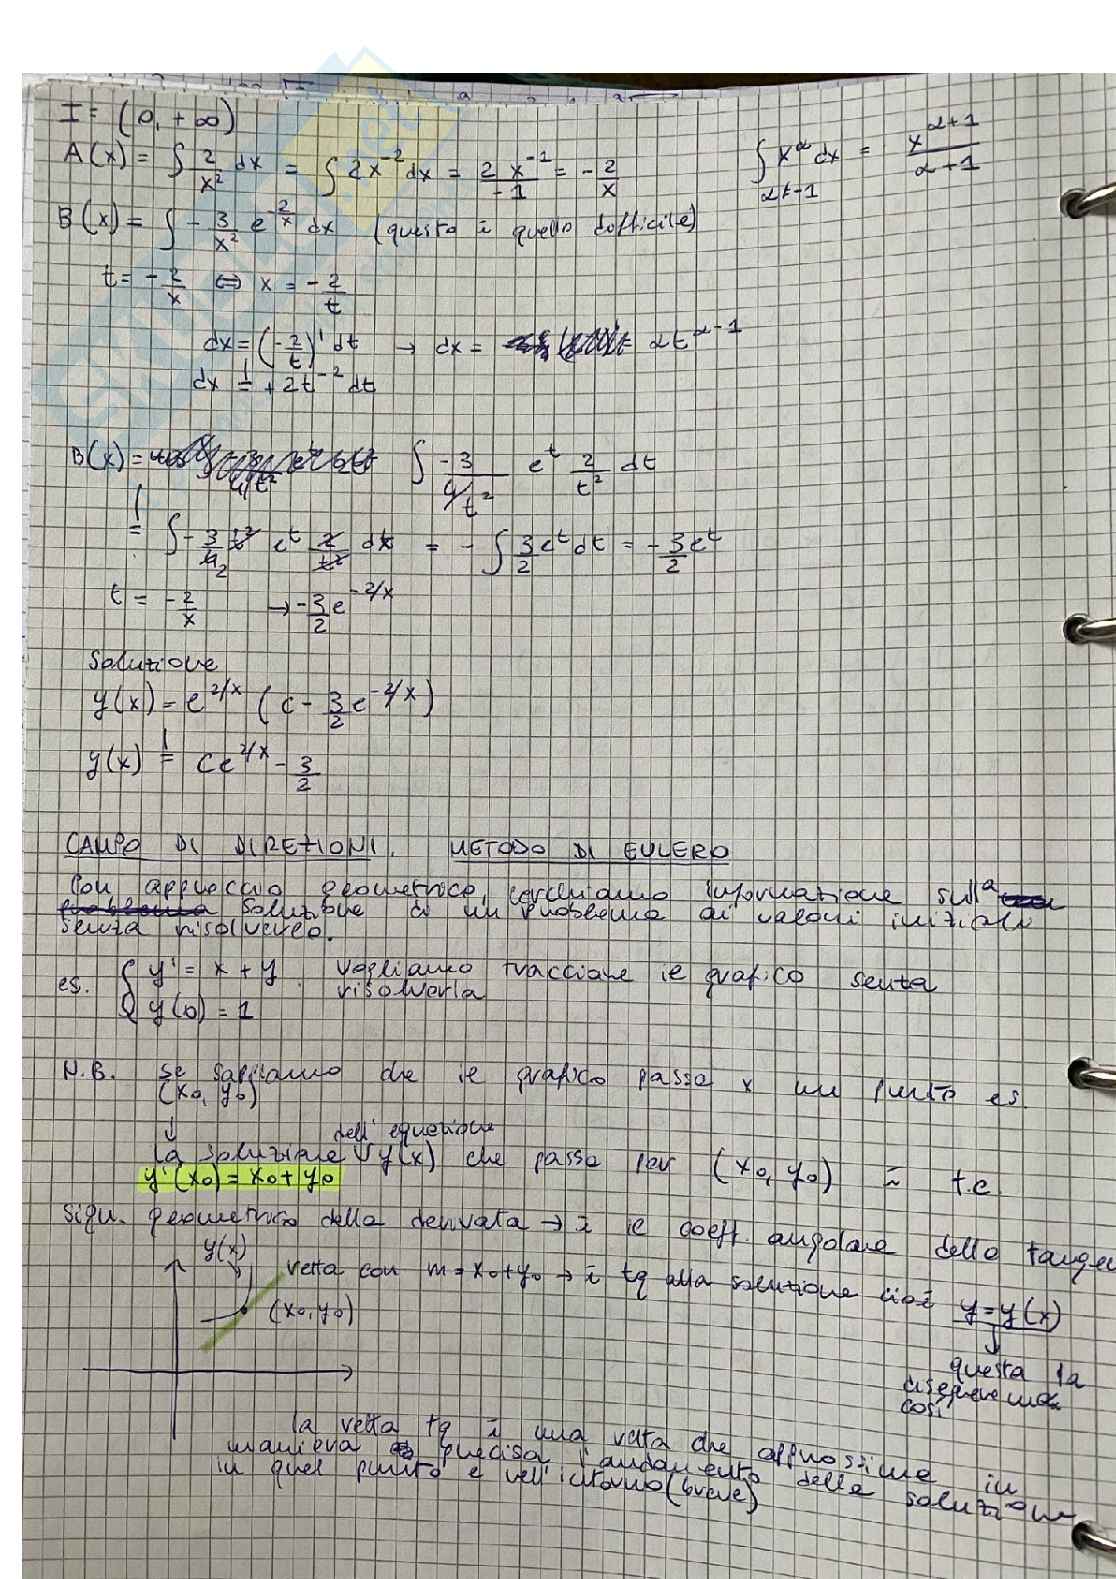 I = (0, +∞)
A(x) = ∫ 2/x² dx = ∫ 2x⁻² dx = 2x⁻¹/-1 = -2/x
∫ x^α dx = x^(α+1)/(α+1)
α≠-1
B(x) = ∫ -3/x² e^(-2/x) dx (questo è quello difficile)
t = -2/x ⇔ x = -2/t
dx = (-2/t)' dt → dx = αt^(α-1)
dx = +2t⁻² dt
B(x) = ∫ -3/(4/t²) e^t 2/t² dt
= ∫ -3/4 t² e^t 2/t² dt = -∫ 3/2 e^t dt = -3/2 e^t
t = -2/x → -3/2 e^(-2/x)
Soluzione
y(x) = e^(2/x) (c - 3/2 e^(-2/x))
y(x) = Ce^(2/x) - 3/2
CAMPO DI DIREZIONI. METODO DI EULERO
Con approccio geometrico, cerchiamo informazione sulla
soluzione di un problema ai valori iniziali
senza risolverlo.
es. { y' = x + y . vogliamo tracciare il grafico senza
risolverla
y(0) = 1
N.B. se sappiamo che il grafico passa x un punto es.
(x₀, y₀)
↓
dell'equazione
la soluzione y(x) che passa per (x₀, y₀) è t.c.
y'(x₀) = x₀ + y₀
sign. geometrico della derivata → è il coeff. angolare della
y(x)
retta con m = x₀+y₀ → è tg alla soluzione cioè y = y(x)
(x₀, y₀)
questa la
disegneremo
così
la retta tg è una retta che approssima in
maniera precisa l'andamento della soluzione
in quel punto e nell'intorno (breve)